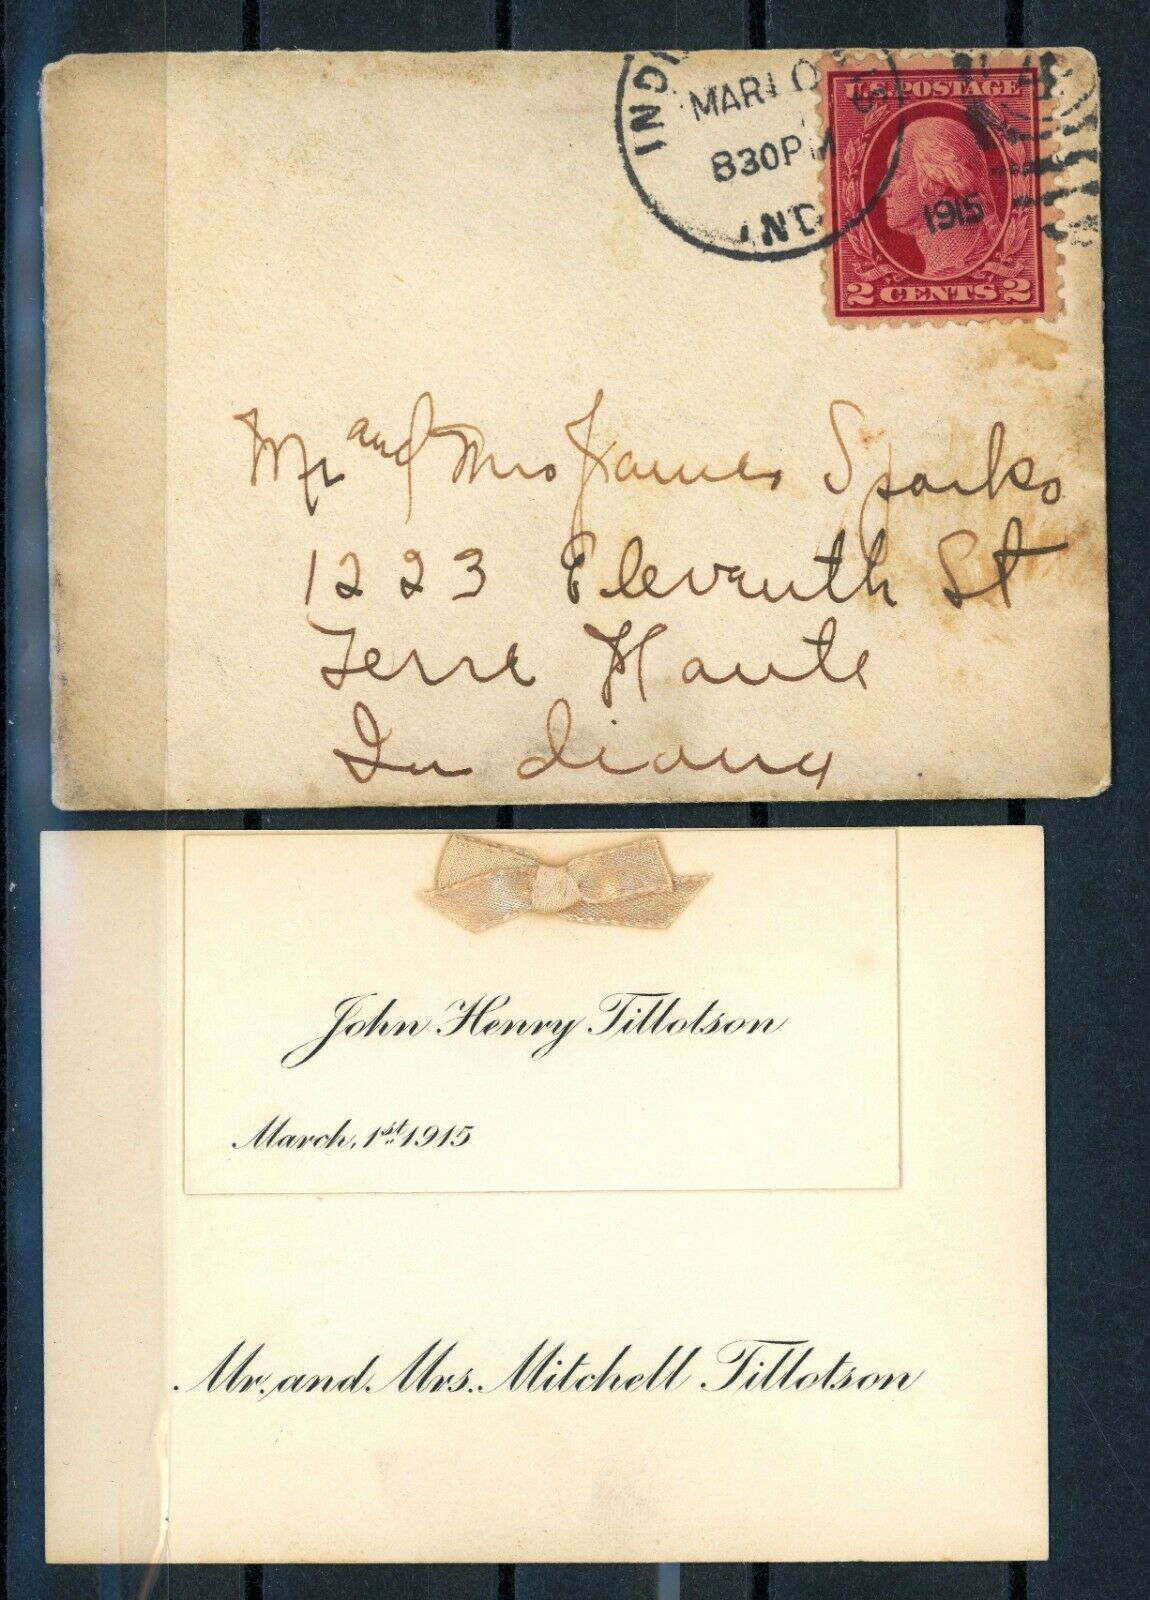 MAR 10
830PM
IND.
1915
U.S. POSTAGE
2 CENTS 2
Mr and Mrs James Sparks
1223 Eleventh St
Terre Haute
Indiana
John Henry Tillotson
March, 1st 1915
Mr. and Mrs. Mitchell Tillotson